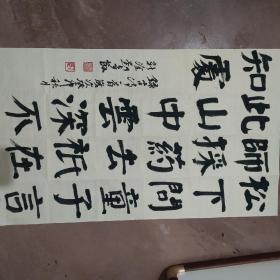 松下問童子言
師採葯去祇在
此山中雲深不
知處